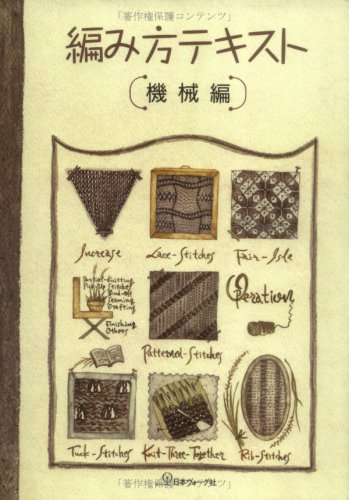 「著作権保護コンテンツ」
編み方テキスト
機械編
Increase
Lace-Stitches
Fair-Isle
Partial-Knitting
Pick-Up Stitches
End-off
Seaming
Grafting
Finishing
Others
Operation
Patterned-Stitches
Tuck-Stitches
Knit-Three-Together
Rib-Stitches
日本ヴォーグ社
「著作権保護コンテンツ」